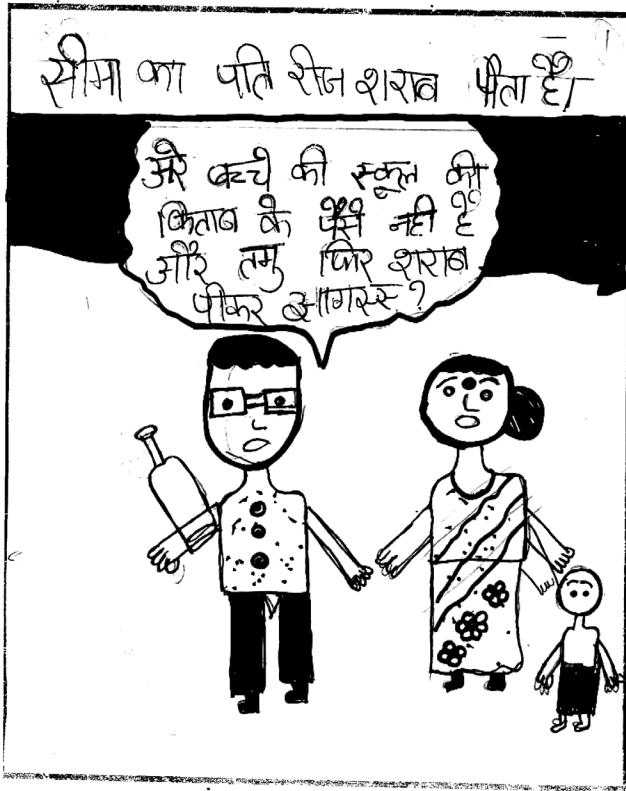 सीमा का पति रोज शराब पीता है।
अरे बच्चे की स्कूल की
किताब के पैसे नही है
और तमु फिर शराब
पीकर आगस्स?